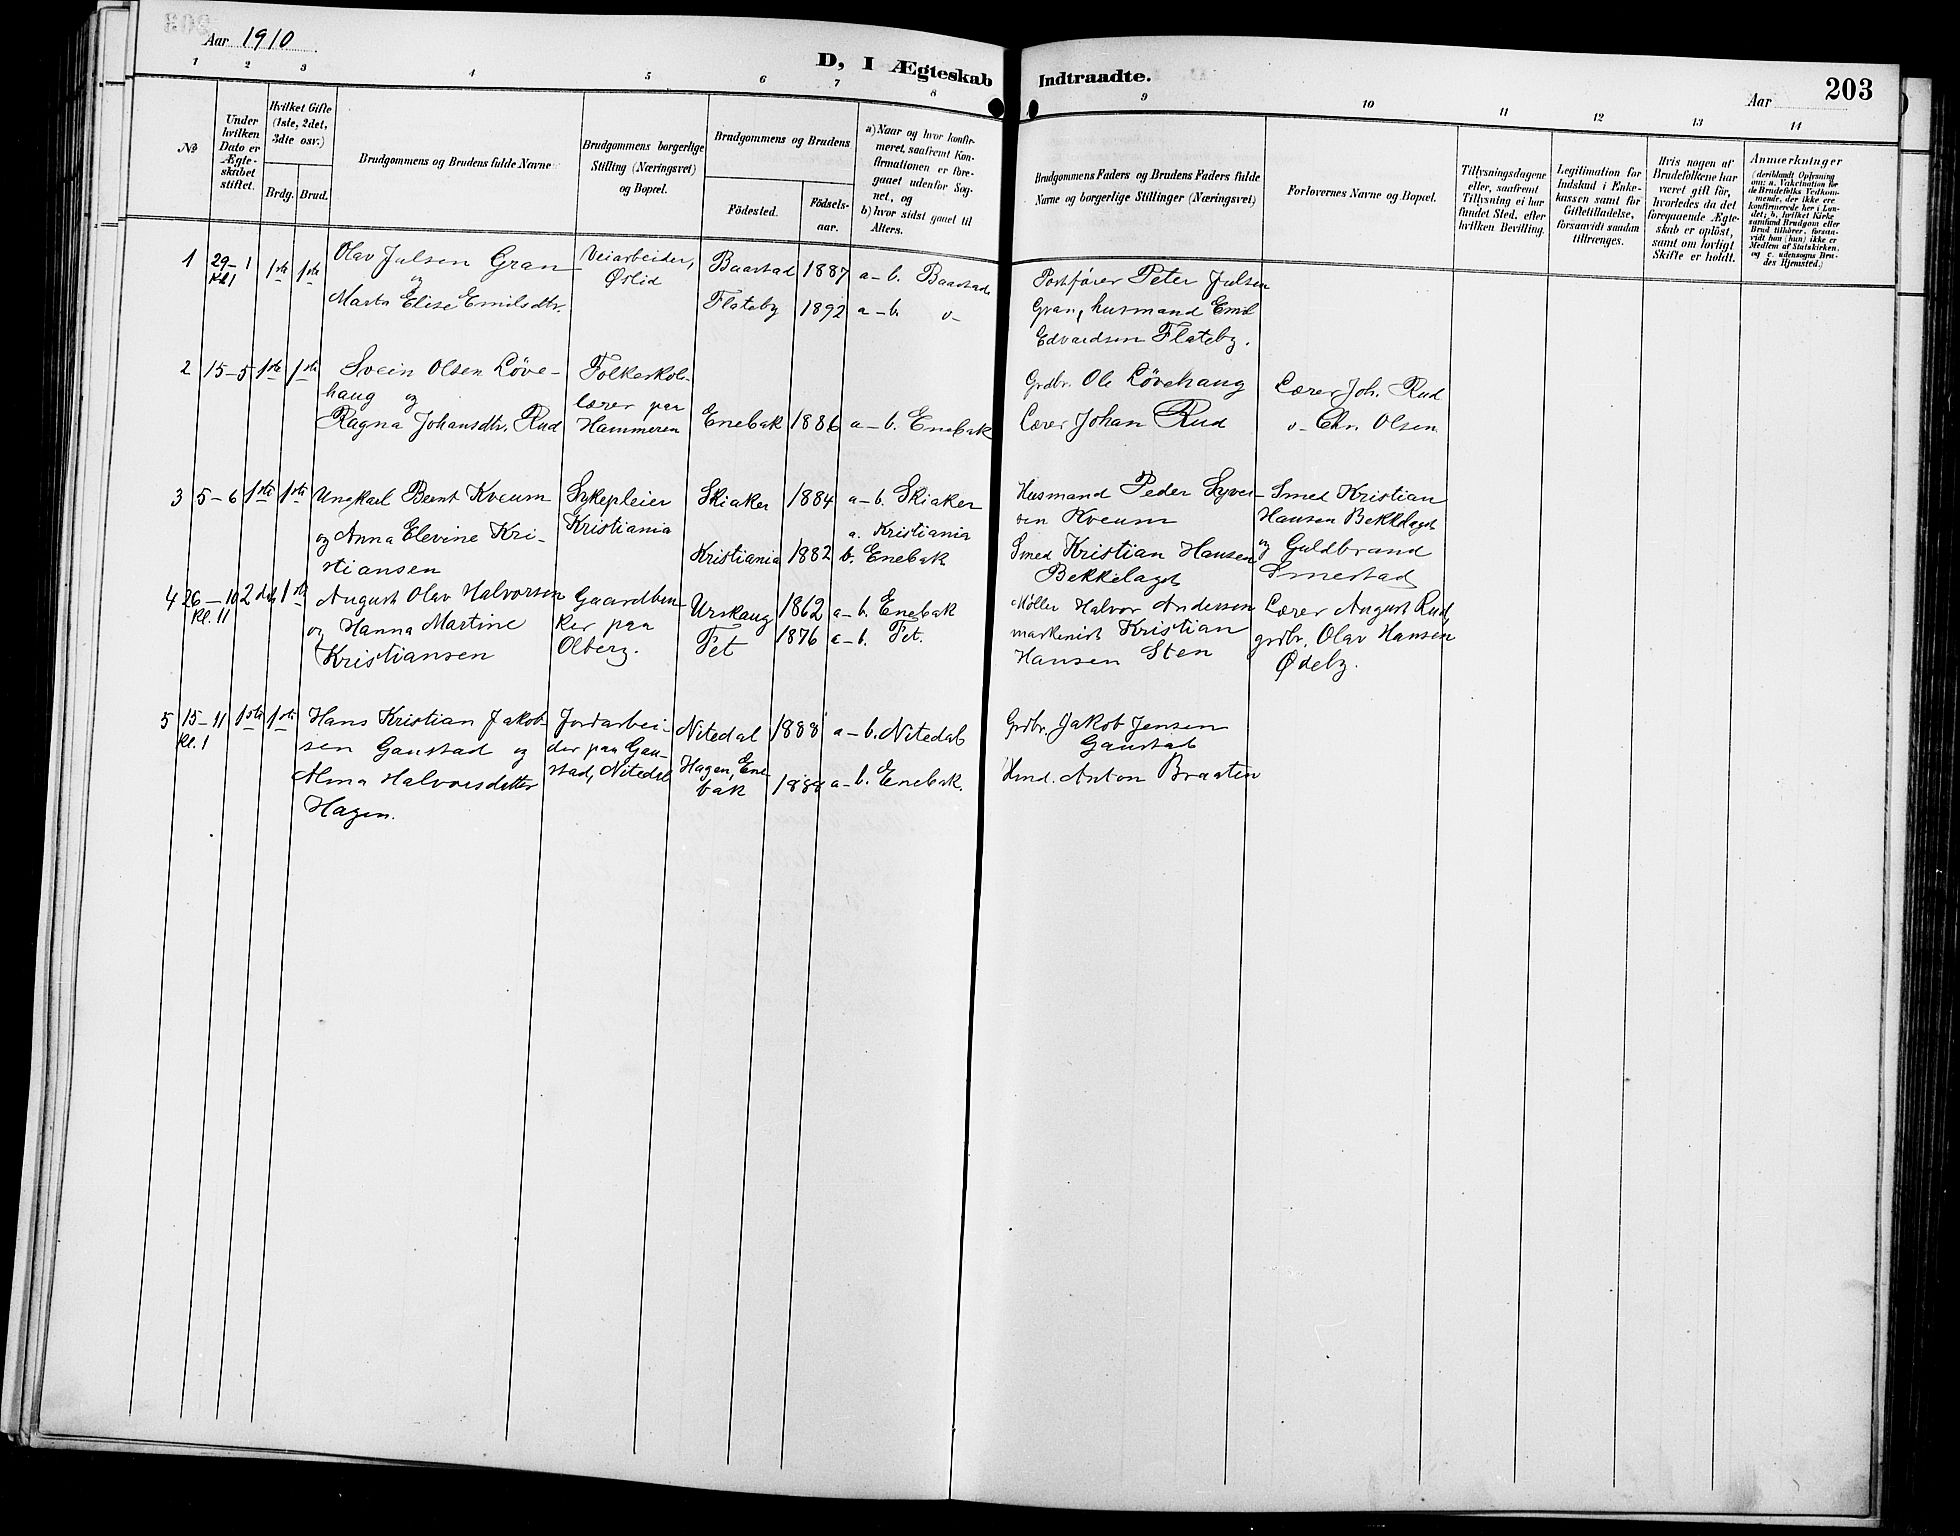 Aar 1910
D, I Ægteskab Indtraadte.
Aar
203
1 2 3 4 5 6 7 8 9 10 11 12 13 14
No
Under hvilken Dato er Ægteskabet stiftet.
Hvilket Gifte (1ste, 2det, 3dte osv.)
Brdg. Brud.
Brudgommens og Brudens fulde Navne
Brudgommens borgerlige Stilling (Næringsvei) og Bopæl.
Brudgommens og Brudens
Födested.
Födsels-aar.
a) Naar og hvor konfirmeret, saafremt Konfirmationen er foregaaet udenfor Sognet, og
b) hvor sidst gaaet til Alters.
Brudgommens Faders og Brudens Faders fulde Navne og borgerlige Stillinger (Næringsvei)
Forlovernes Navne og Bopæl.
Tillysningsdagene eller, saafremt Tillysning ei har fundet Sted, efter hvilken Bevilling.
Legitimation for Indskud i Enkekassen samt for Giftetilladelse, forsaavidt saadan tiltrænges.
Hvis nogen af Brudefolkene har været gift för, hvorledes da det foregaaende Ægteskab er oplöst, samt om lovligt Skifte er holdt.
Anmærkninger (deriblandt Oplysning om: a. Vakcination for de Brudefolks Vedkommende, der ikke ere konfirmerede her i Landet; b. hvilket Kirkesamfund Brudgom eller Brud tilhörer, forsaavidt han (hun) ikke er Medlem af Statskirken, og c. udensogns Brudes Hjemsted.)
1 29-1 1ste 1ste Olav Julsen Gran Veiarbeider, Baastad 1887 a-b. Baastad Postfører Peter Julsen
Kl 1 og Ørlid
Marta Elise Emilsdtr. Flateby 1892 a-b. v- Gran, husmand Emil
Edvardsen Flateby.
2 15-5 1ste 1ste Svein Olsen Løve- Folkeskole- Grdbr. Ole Løvehaug Lærer Joh. Rud
haug og lærer paa
Ragna Johansdtr. Rud Hammeren Enebak 1886 a-b. Enebak Lærer Johan Rud v- Chr. Olsen
3 5-6 1ste 1ste Ungkarl Bernt Kveum Sykepleier Skiaker 1884 a-b. Skiaker Husmand Peder Syver- Smed Kristian
og Anna Elevine Kri- Kristiania a. Kristiania sen Kveum Hansen Bekkelaget
stiansen Kristiania 1882 b. Enebak Smed Kristian Hansen og Guldbrand
Bekkelaget Smestad
4 26-10 2det 1ste August Olav Halvorsen Gaardbru- Urskaug 1862 a-b. Enebak Møller Halvor Andersen Lærer August Rud,
Kl. 11 og Hanna Martine ker paa Fet 1876 a-b. Fet. maskinist Kristian grdbr. Olav Hansen
Kristiansen Olberg. Hansen Sten Ødeby.
5 15-11 1ste 1ste Hans Kristian Jakob- Jordarbei- Nitedal 1888 a-b. Nitedal Grdbr. Jakob Jensen
Kl. 1 sen Gaustad og der paa Gau- Gaustad
Alma Halvorsdatter stad, Nitedal Hagen, Ene- 1888 a-b. Enebak. Hmd. Anton Braaten
Hagen. bak